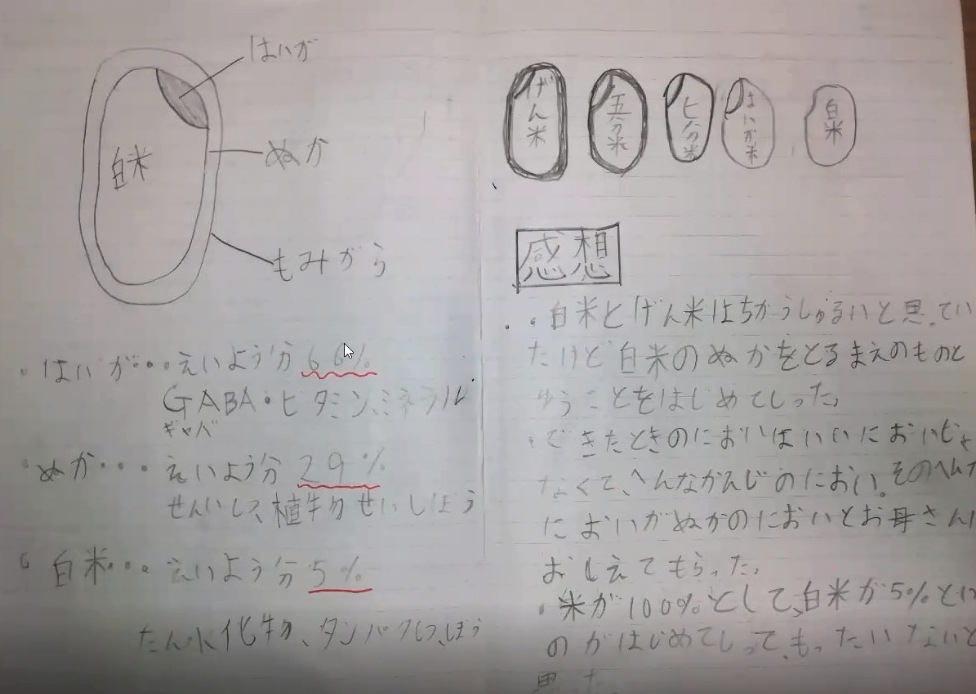 はいが
白米
ぬか
もみがら
・はいが・・・えいよう分
GABA・ビタミン、ミネラル
ギャバ
・ぬか・・・えいよう分 29%
せんいしつ、植物せいしぼう
・白米・・・えいよう分 5%
たん水化物、タンパクしつ、しぼう
げん米
五分米
七分米
はいが米
白米
感想
・白米とげん米はちがうしゅるいと思ってい
たけど白米のぬかをとるまえのものと
ゆうことをはじめてしった。
・できたときのにおいはいいにおいじゃ
なくて、へんなかんじのにおい。そのへんな
においがぬかのにおいとお母さんに
おしえてもらった。
・米が100%として、白米が5%とい
のがはじめてしって、もったいないと
思った